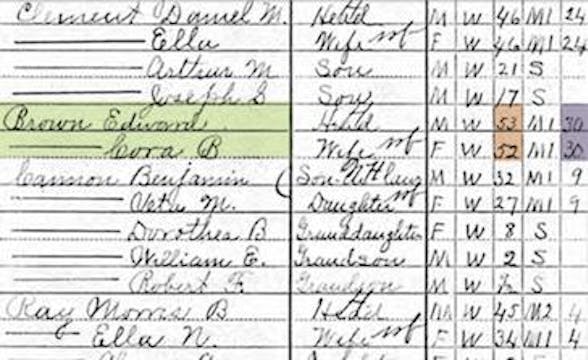 Clement Daniel M. Head M W 46 M1 24
Ella Wife F W 46 M1 24
Arthur M Son M W 21 S
Joseph S Son M W 17 S
Brown Edward Head M W 53 M1 30
Cora B Wife F W 52 M1 30
Cannon Benjamin Son M W 32 M1 9
Veta M. Daughter F W 27 M1 9
Dorothea B Granddaughter F W 8 S
William E. Grandson M W 2 S
Robert F. Grandson M W S
Ray Morris B Head M W 45 M2 4
Ella N. Wife F W 34 M1 4